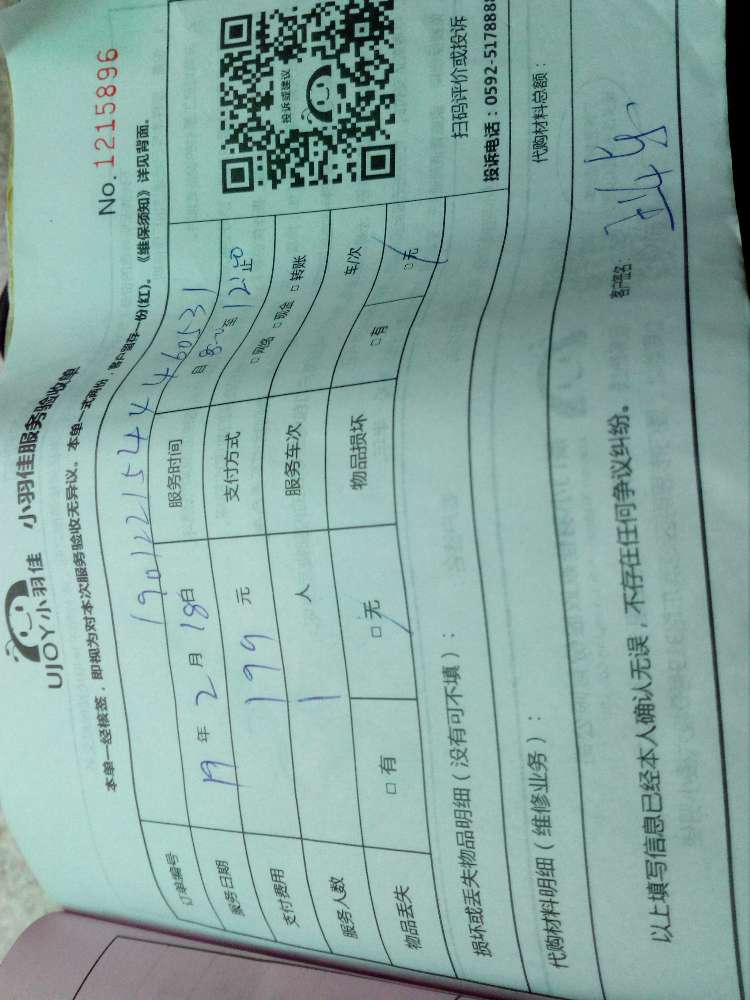 UJOY小羽佳 小羽佳服务验收单
No.1215896
本单一经核签，即视为对本次服务验收无异议。本单一式两份，客户留存一份(红)。《维保须知》详见背面。
订单编号 190122154446053​1
服务日期 19年2月18日 服务时间 自8:00至12:00止
支付费用 199元 支付方式 □网络 □现金 □转账
服务人数 1人 服务车次 车/次
物品丢失 □有 □无 物品损坏 □有 □无
投诉或建议
扫码评价或投诉
投诉电话：0592-5178888
损坏或丢失物品明细（没有可不填）：
代购材料明细（维修业务）： 代购材料总额：
以上填写信息已经本人确认无误，不存在任何争议纠纷。 客户签名：